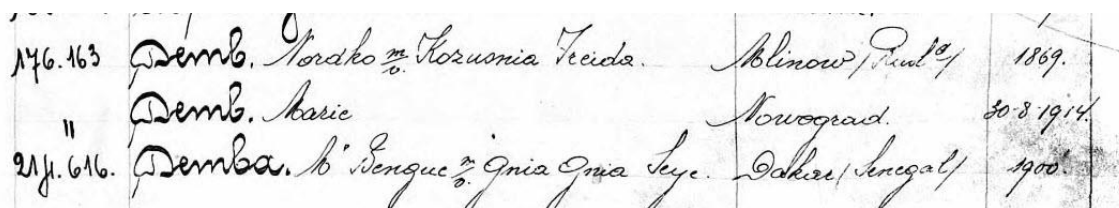 176.163 Demb. Nordko m/v. Kozusnia Freida. Mlinow /Rusl^d/ 1869.
" Demb. Marie Nowograd. 30-8-1914.
214.616. Demba. M' Bengue m/v. Gnia Gnia Seye. Dakar /Senegal/ 1900.